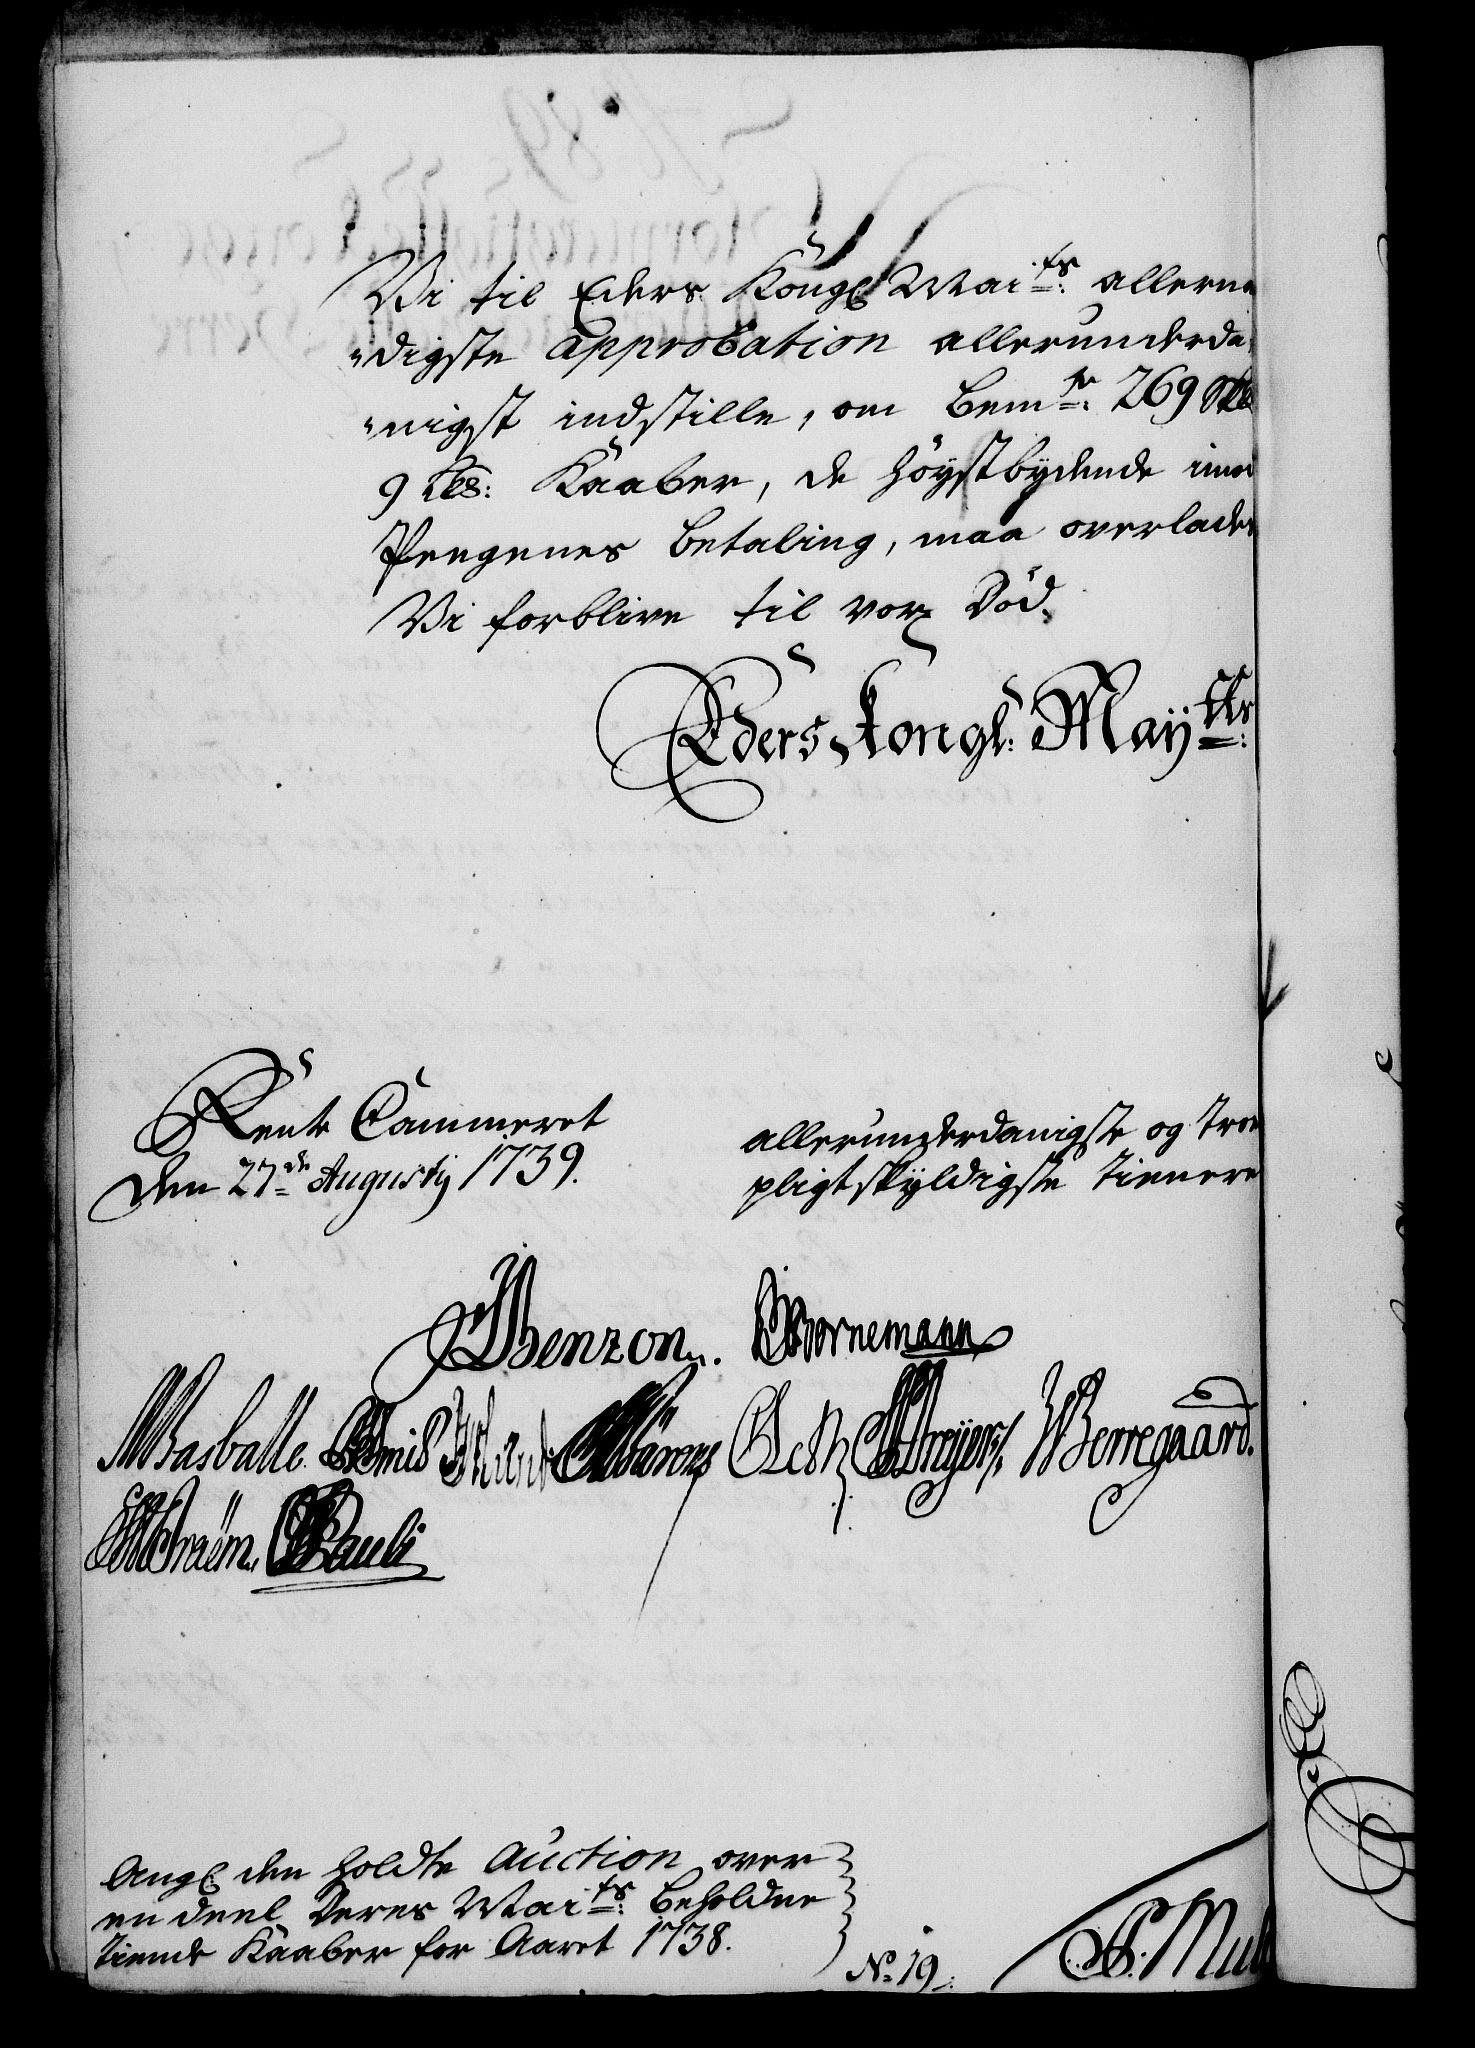 Vi til Eders Kongl Mai:ts: allerna
digste approbation allerunderda
nigst indstille, om bem:te: 269
9 Kaaber, de höystbydende imod
Pengenes betaling, maa overlades
Vi forblive til vor Död.
Eders Kongl: Maÿtts:
Rente Cammeret
den 27de Augustij 1739.
allerunderdanigste og troe
pligtskyldigste tienere
Benzon. Bornemann
Basballe. Berregaard.
Pauli
Angl. den holdte Auction over
en deel Deres Mai:ts: beholdne
tiende Kaaber for Aaret 1738.
No. 19.